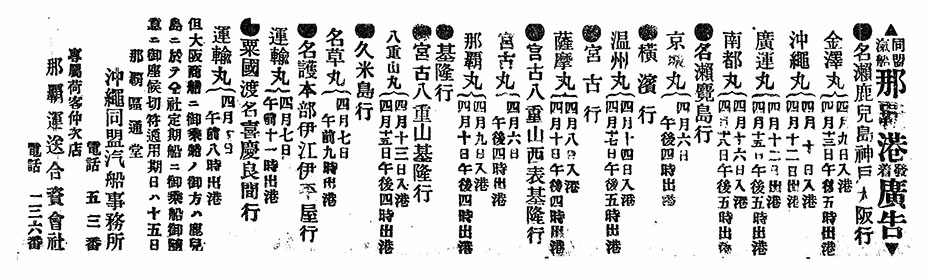 ▲同盟汽船那覇港發着廣告▼
●名瀬鹿兒島神戸大阪行
金澤丸 四月 日入港 四月三日午後五時出港
沖繩丸 四月十二日入港 四月十二日 出港
廣運丸 四月十日入港 四月 日午後四時出港
南都丸 四月十六日入港 四月十八日午後五時出港
●名瀬覽島行
京城丸 四月六日 午後四時
●横濱行
温州丸 四月十四日入港 四月十七日午後五時出港
●宮古行
薩摩丸 四月八日入港 四月十日午後四時出港
●宮古八重山西表基隆行
宮古丸 四月六日 午後四時出港
那覇丸 四月九日入港 四月十日午後四時出港
●基隆行
●宮古八重山基隆行
八重山丸 四月十三日入港 四月十五日午後四時出港
●久米島行
名草丸 四月七日 午前九時出港
●名護本部伊江伊平屋行
運輸丸 四月七日 午前十一時出港
●粟國渡名喜慶良間行
運輸丸 四月 日 午前八時出港
但大阪商船ニ御乘船ノ御方ハ鹿兒
島ニ於テ仝社定期船ニ御乘船御隨
意ニ御座候切符通用期日ハ十五日
那覇區通堂
沖繩同盟汽船事務所
電話 五三番
專屬荷客仲次店
那覇運送合資會社
電話 一三六番